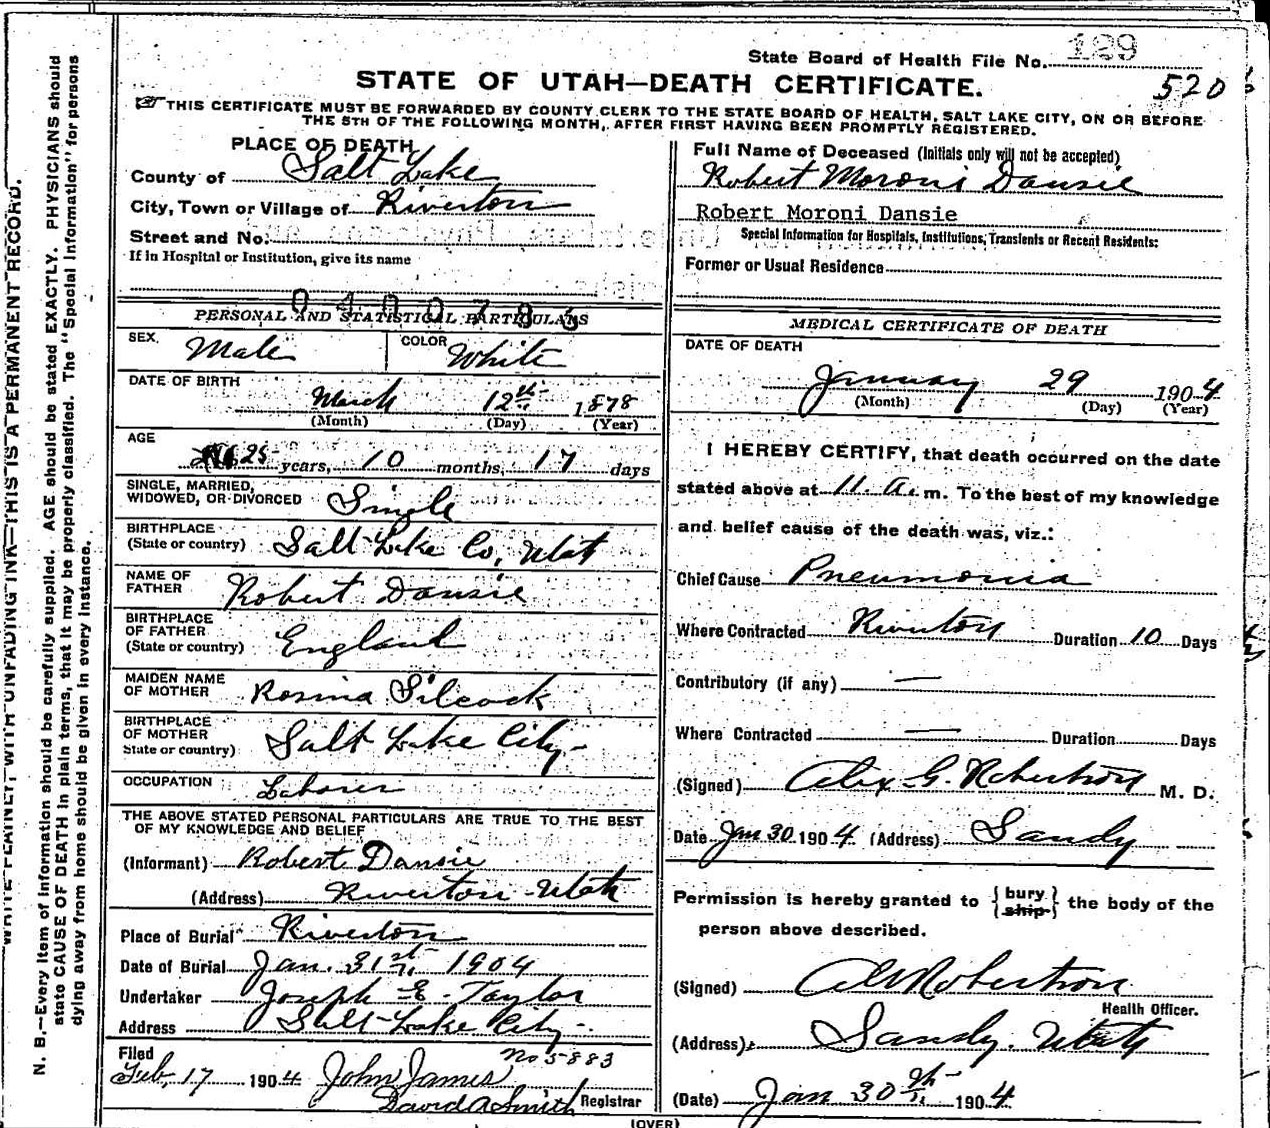 State Board of Health File No. 189
520
STATE OF UTAH—DEATH CERTIFICATE.
THIS CERTIFICATE MUST BE FORWARDED BY COUNTY CLERK TO THE STATE BOARD OF HEALTH, SALT LAKE CITY, ON OR BEFORE
THE 5TH OF THE FOLLOWING MONTH, AFTER FIRST HAVING BEEN PROMPTLY REGISTERED.
PLACE OF DEATH
County of Salt Lake
City, Town or Village of Riverton
Street and No.
If in Hospital or Institution, give its name
Full Name of Deceased (Initials only will not be accepted)
Robert Moroni Dansie
Robert Moroni Dansie
Special Information for Hospitals, Institutions, Transients or Recent Residents:
Former or Usual Residence
PERSONAL AND STATISTICAL PARTICULARS
SEX. Male COLOR White
DATE OF BIRTH
March 12th 1878
(Month) (Day) (Year)
AGE
25 years, 10 months, 17 days
SINGLE, MARRIED,
WIDOWED, OR DIVORCED Single
BIRTHPLACE
(State or country) Salt Lake Co, Utah
NAME OF
FATHER Robert Dansie
BIRTHPLACE
OF FATHER
(State or country) England
MAIDEN NAME
OF MOTHER Rosina Silcock
BIRTHPLACE
OF MOTHER
State or country) Salt Lake City
OCCUPATION Laborer
THE ABOVE STATED PERSONAL PARTICULARS ARE TRUE TO THE BEST
OF MY KNOWLEDGE AND BELIEF
(Informant) Robert Dansie
(Address) Riverton Utah
Place of Burial Riverton
Date of Burial Jan. 31st 1904
Undertaker Joseph E. Taylor
Address Salt Lake City
No 5883
Filed
Feb, 17 1904 John James
David A Smith Registrar
MEDICAL CERTIFICATE OF DEATH
DATE OF DEATH
January 29 1904
(Month) (Day) (Year)
I HEREBY CERTIFY, that death occurred on the date
stated above at 11. a. m. To the best of my knowledge
and belief cause of the death was, viz.:
Chief Cause Pneumonia
Where Contracted Riverton Duration 10 Days
Contributory (if any) —
Where Contracted — Duration Days
(Signed) Alex G. Robertson M. D.
Date Jan 30 1904 (Address) Sandy
Permission is hereby granted to {bury
ship} the body of the
person above described.
(Signed) Robertson
Health Officer.
(Address) Sandy. Utah
(Date) Jan 30th 1904
(OVER)
WRITE PLAINLY WITH UNFADING INK—THIS IS A PERMANENT RECORD.
N. B.—Every item of information should be carefully supplied. AGE should be stated EXACTLY. PHYSICIANS should
state CAUSE OF DEATH in plain terms, that it may be properly classified. The "Special Information" for persons
dying away from home should be given in every instance.